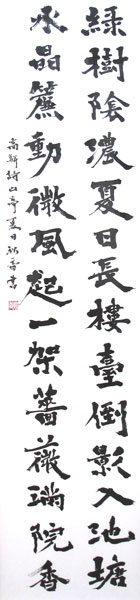 綠樹陰濃夏日長樓臺倒影入池塘
水晶簾動微風起一架薔薇滿院香
高駢詩山亭夏日